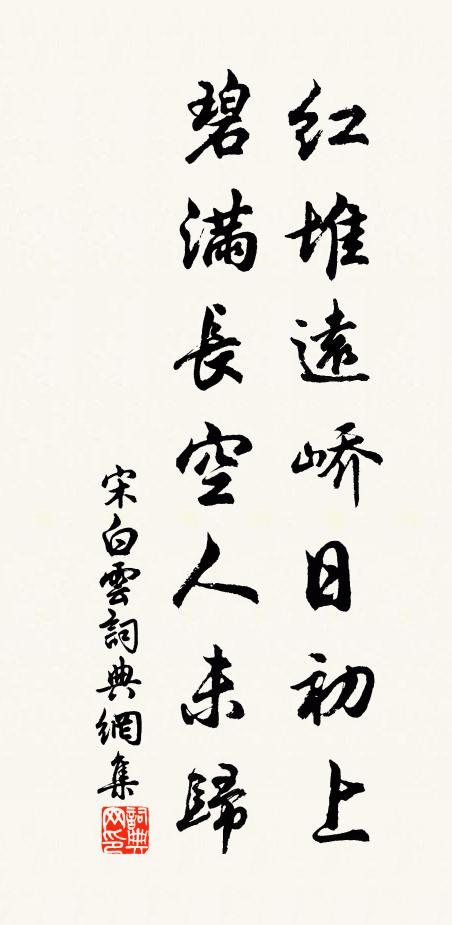 红堆遠峤日初上
碧滿長空人未歸
宋白雲詞典網集
詞典网印